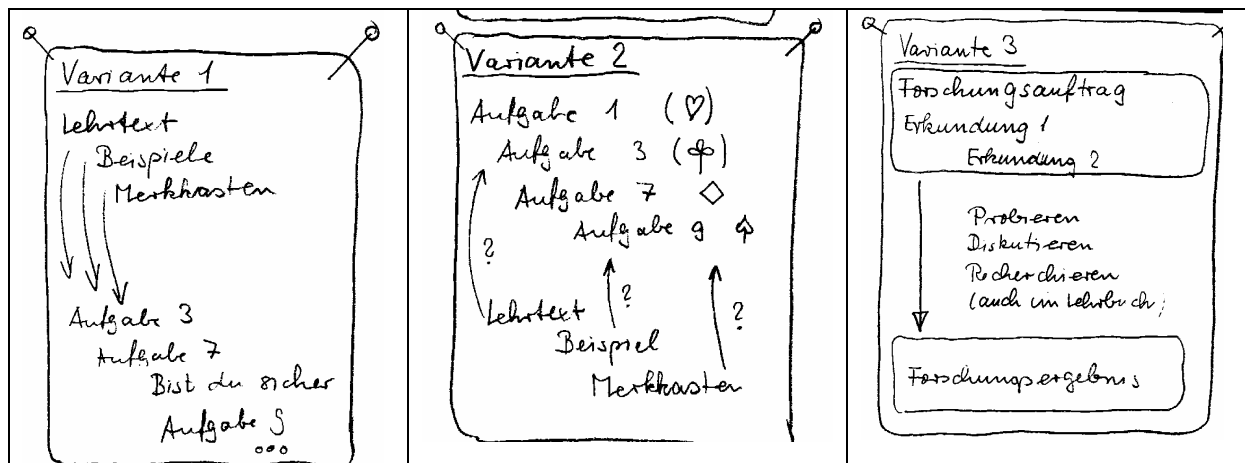 Variante 1
Lehrtext
Beispiele
Merkkasten
Aufgabe 3
Aufgabe 7
Bist du sicher
Aufgabe
ooo
Variante 2
Aufgabe 1 (♡)
Aufgabe 3 (♣)
Aufgabe 7 ◇
Aufgabe 9 ♠
?
?
?
Lehrtext
Beispiel
Merkkasten
Variante 3
Forschungsauftrag
Erkundung 1
Erkundung 2
Probieren
Diskutieren
Recherchieren
(auch im Lehrbuch)
Forschungsergebnis